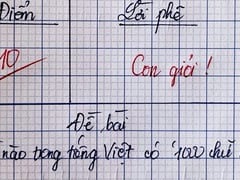 Điểm Lời phê
10 Con giỏi !
Đề bài
nào trong tiếng Việt có 1000 chữ